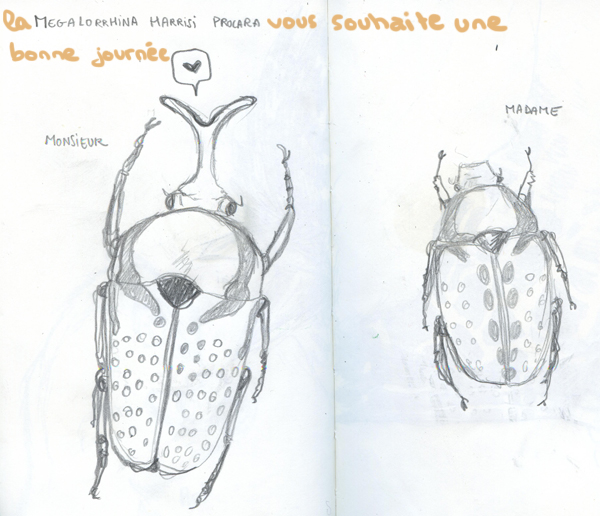 la MEGALORRHINA HARRISI PROCARA vous souhaite une
bonne journée
MONSIEUR
MADAME